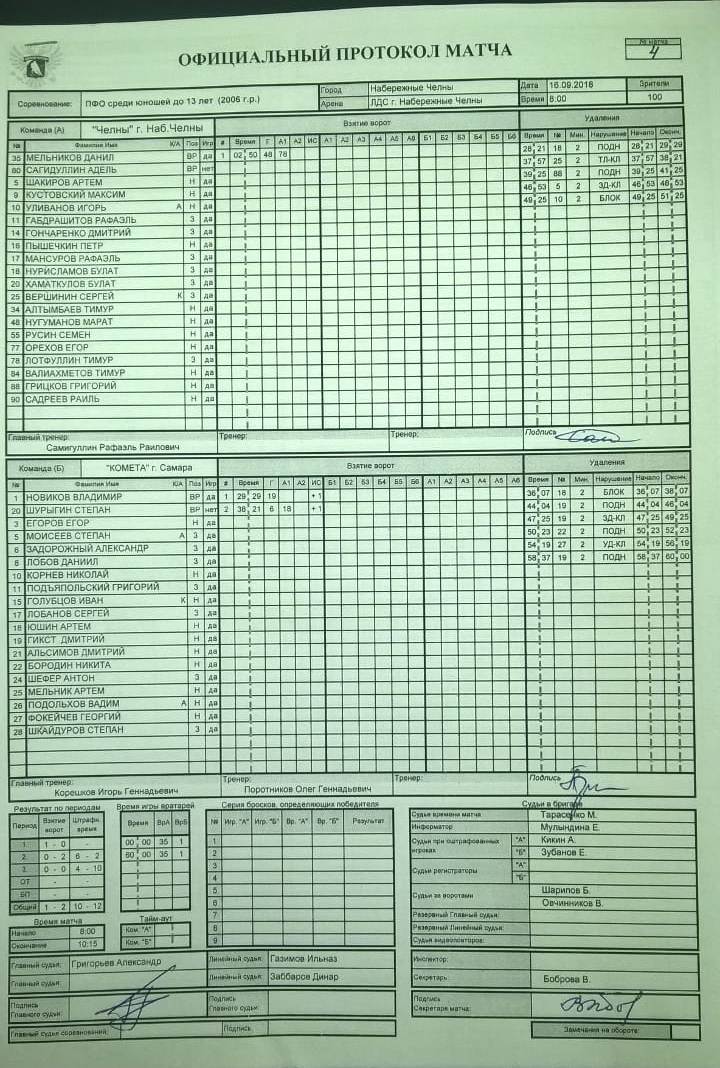 ОФИЦИАЛЬНЫЙ ПРОТОКОЛ МАТЧА
№ матча
4
Соревнование: ПФО среди юношей до 13 лет (2006 г.р.) Город Набережные Челны Дата 16.09.2018 Зрители
Арена ЛДС г. Набережные Челны Время 8:00 100
Команда (А) "Челны" г. Наб.Челны Взятие ворот Удаления
№ Фамилия Имя К/А Поз Игр # Время Г А1 А2 ИС А1 А2 А3 А4 А5 А6 Б1 Б2 Б3 Б4 Б5 Б6 Время № Мин. Нарушение Начало Оконч.
35 МЕЛЬНИКОВ ДАНИЛ ВР да 1 02 50 48 78 28 21 18 2 ПОДН 28 21 29 29
80 САГИДУЛЛИН АДЕЛЬ ВР нет 37 57 25 2 ТЛ-КЛ 37 57 38 21
5 ШАКИРОВ АРТЕМ Н да 39 25 88 2 ПОДН 39 25 41 25
9 КУСТОВСКИЙ МАКСИМ Н да 46 53 5 2 ЗД-КЛ 46 53 48 53
10 УЛИВАНОВ ИГОРЬ А Н да 49 25 10 2 БЛОК 49 25 51 25
11 ГАБДРАШИТОВ РАФАЭЛЬ З да
14 ГОНЧАРЕНКО ДМИТРИЙ З да
16 ПЫШЕЧКИН ПЕТР Н да
17 МАНСУРОВ РАФАЭЛЬ З да
18 НУРИСЛАМОВ БУЛАТ З да
20 ХАМАТКУЛОВ БУЛАТ З да
25 ВЕРШИНИН СЕРГЕЙ К З да
34 АЛТЫМБАЕВ ТИМУР Н да
48 НУГУМАНОВ МАРАТ Н да
55 РУСИН СЕМЕН Н да
77 ОРЕХОВ ЕГОР Н да
78 ЛОТФУЛЛИН ТИМУР З да
84 ВАЛИАХМЕТОВ ТИМУР Н да
88 ГРИЦКОВ ГРИГОРИЙ Н да
90 САДРЕЕВ РАИЛЬ Н да
Главный тренер: Тренер: Тренер: Подпись
Самигуллин Рафаэль Раилович
Команда (Б) "КОМЕТА" г. Самара Взятие ворот Удаления
№ Фамилия Имя К/А Поз Игр # Время Г А1 А2 ИС Б1 Б2 Б3 Б4 Б5 Б6 А1 А2 А3 А4 А5 А6 Время № Мин. Нарушение Начало Оконч.
1 НОВИКОВ ВЛАДИМИР ВР да 1 29 29 19 +1 36 07 18 2 БЛОК 36 07 38 07
20 ШУРЫГИН СТЕПАН ВР нет 2 38 21 6 18 +1 44 04 19 2 ПОДН 44 04 46 04
3 ЕГОРОВ ЕГОР Н да 47 25 19 2 ЗД-КЛ 47 25 49 25
5 МОИСЕЕВ СТЕПАН А З да 50 23 22 2 ПОДН 50 23 52 23
6 ЗАДОРОЖНЫЙ АЛЕКСАНДР З да 54 19 27 2 УД-КЛ 54 19 56 19
8 ЛОБОВ ДАНИИЛ З да 58 37 19 2 ПОДН 58 37 60 00
10 КОРНЕВ НИКОЛАЙ Н да
11 ПОДЪЯПОЛЬСКИЙ ГРИГОРИЙ З да
15 ГОЛУБЦОВ ИВАН К Н да
17 ЛОБАНОВ СЕРГЕЙ З да
18 ЮШИН АРТЕМ Н да
19 ГИКСТ ДМИТРИЙ Н да
21 АЛЬСИМОВ ДМИТРИЙ Н да
22 БОРОДИН НИКИТА Н да
24 ШЕФЕР АНТОН З да
25 МЕЛЬНИК АРТЕМ Н да
26 ПОДОЛЬХОВ ВАДИМ А Н да
27 ФОКЕЙЧЕВ ГЕОРГИЙ Н да
28 ШКАЙДУРОВ СТЕПАН З да
Главный тренер: Тренер: Тренер: Подпись
Корешков Игорь Геннадьевич Поротников Олег Геннадьевич
Результат по периодам Время игры вратарей Серия бросков, определяющих победителя Судьи в бригаде
Период Взятие ворот Штрафн. время Время ВрА ВрБ № Игр. "А" Игр. "Б" Вр. "А" Вр. "Б" Результат
1. 1 - 0 - 00 00 35 1 1
2. 0 - 2 6 - 2 60 00 35 1 2
3. 0 - 0 4 - 10 3
ОТ - - 4
БП - 5
Общий 1 - 2 10 - 12 6
7
8
9
Судья времени матча Тарасенко М.
Информатор Мулындина Е.
Судьи при оштрафованных игроках "А" Кикин А.
"Б" Зубанов Е.
Судьи регистраторы "А"
"Б"
Судьи за воротами Шарипов Б.
Овчинников В.
Резервный Главный судья:
Резервный Линейный судья:
Судья видеоповторов:
Время матча Тайм-аут
Начало 8:00 Ком. "А"
Окончание 10:15 Ком. "Б"
Главный судья: Григорьев Александр Линейный судья: Газимов Ильназ Инспектор:
Главный судья: Линейный судья: Заббаров Динар Секретарь Боброва В.
Подпись Главного судьи: Подпись Главного судьи: Подпись Секретаря матча:
Главный судья соревнований: Подпись Замечания на обороте: